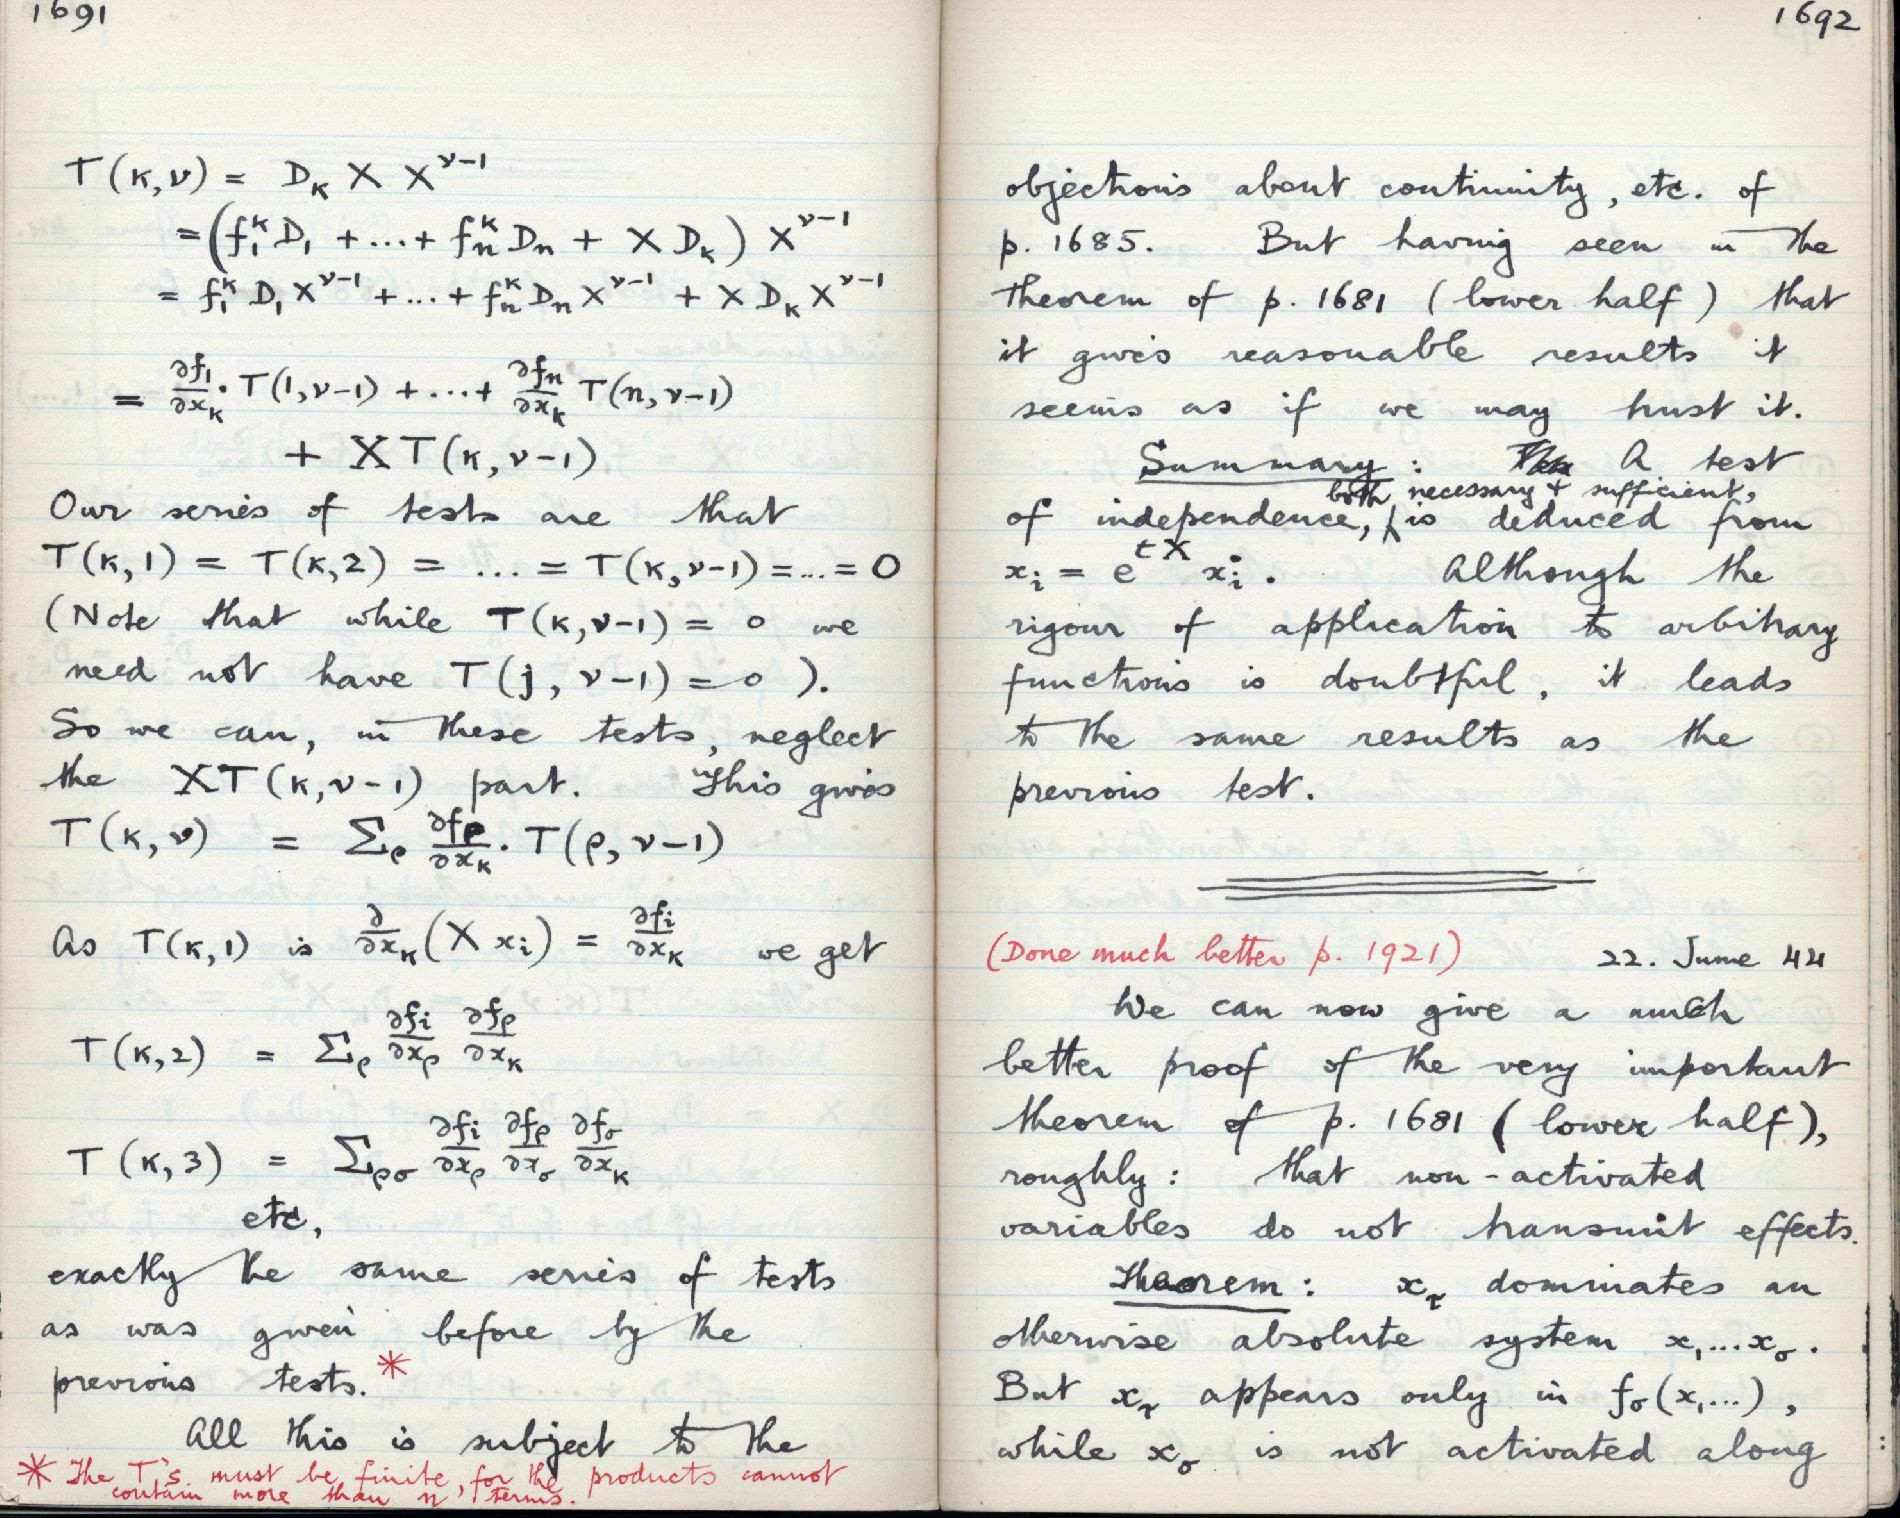 1691
T(κ,ν) = D_κ X X^{ν-1}
= (f_1^κ D_1 + ... + f_n^κ D_n + X D_κ) X^{ν-1}
= f_1^κ D_1 X^{ν-1} + ... + f_n^κ D_n X^{ν-1} + X D_κ X^{ν-1}
= ∂f_1/∂x_κ · T(1,ν-1) + ... + ∂f_n/∂x_κ T(n,ν-1)
+ X T(κ,ν-1)
Our series of tests are that
T(κ,1) = T(κ,2) = ... = T(κ,ν-1) = ... = 0
(Note that while T(κ,ν-1) = 0 we
need not have T(j, ν-1) = 0 ).
So we can, in these tests, neglect
the XT(κ,ν-1) part. This gives
T(κ,ν) = Σ_ρ ∂f_ρ/∂x_κ · T(ρ, ν-1)
As T(κ,1) is ∂/∂x_κ (X x_i) = ∂f_i/∂x_κ we get
T(κ,2) = Σ_ρ ∂f_i/∂x_ρ ∂f_ρ/∂x_κ
T(κ,3) = Σ_ρσ ∂f_i/∂x_ρ ∂f_ρ/∂x_σ ∂f_σ/∂x_κ
etc,
exactly the same series of tests
as was given before by the
previous tests.*
All this is subject to the
* The T's must be finite, for the products cannot
contain more than n terms.
1692
objections about continuity, etc. of
p. 1685. But having seen in the
theorem of p. 1681 (lower half) that
it gives reasonable results it
seems as if we may trust it.
Summary: A test
both necessary + sufficient,
of independence, is deduced from
x_i = e^{tX} x_i°. Although the
rigour of application to arbitrary
functions is doubtful, it leads
to the same results as the
previous test.
(Done much better p. 1921) 22. June 44
We can now give a much
better proof of the very important
theorem of p. 1681 (lower half),
roughly: that non-activated
variables do not transmit effects.
Theorem: x_τ dominates an
otherwise absolute system x_1...x_σ.
But x_τ appears only in f_σ(x_1...),
while x_σ is not activated along